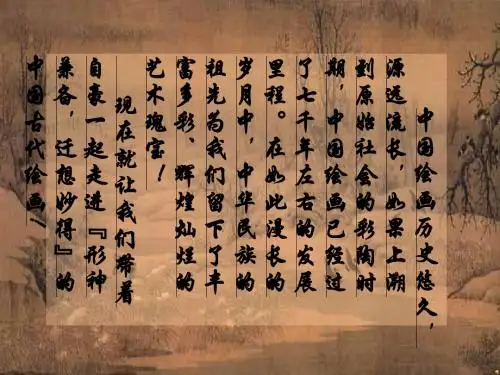 中国绘画历史悠久，
源远流长，如果上溯
到原始社会的彩陶时
期，中国绘画已经过
了七千年左右的发展
里程。在如此漫长的
岁月中，中华民族的
祖先为我们留下了丰
富多彩、辉煌灿烂的
艺术瑰宝！
现在就让我们带着
自豪一起走进『形神
兼备，迁想妙得』的
中国古代绘画！